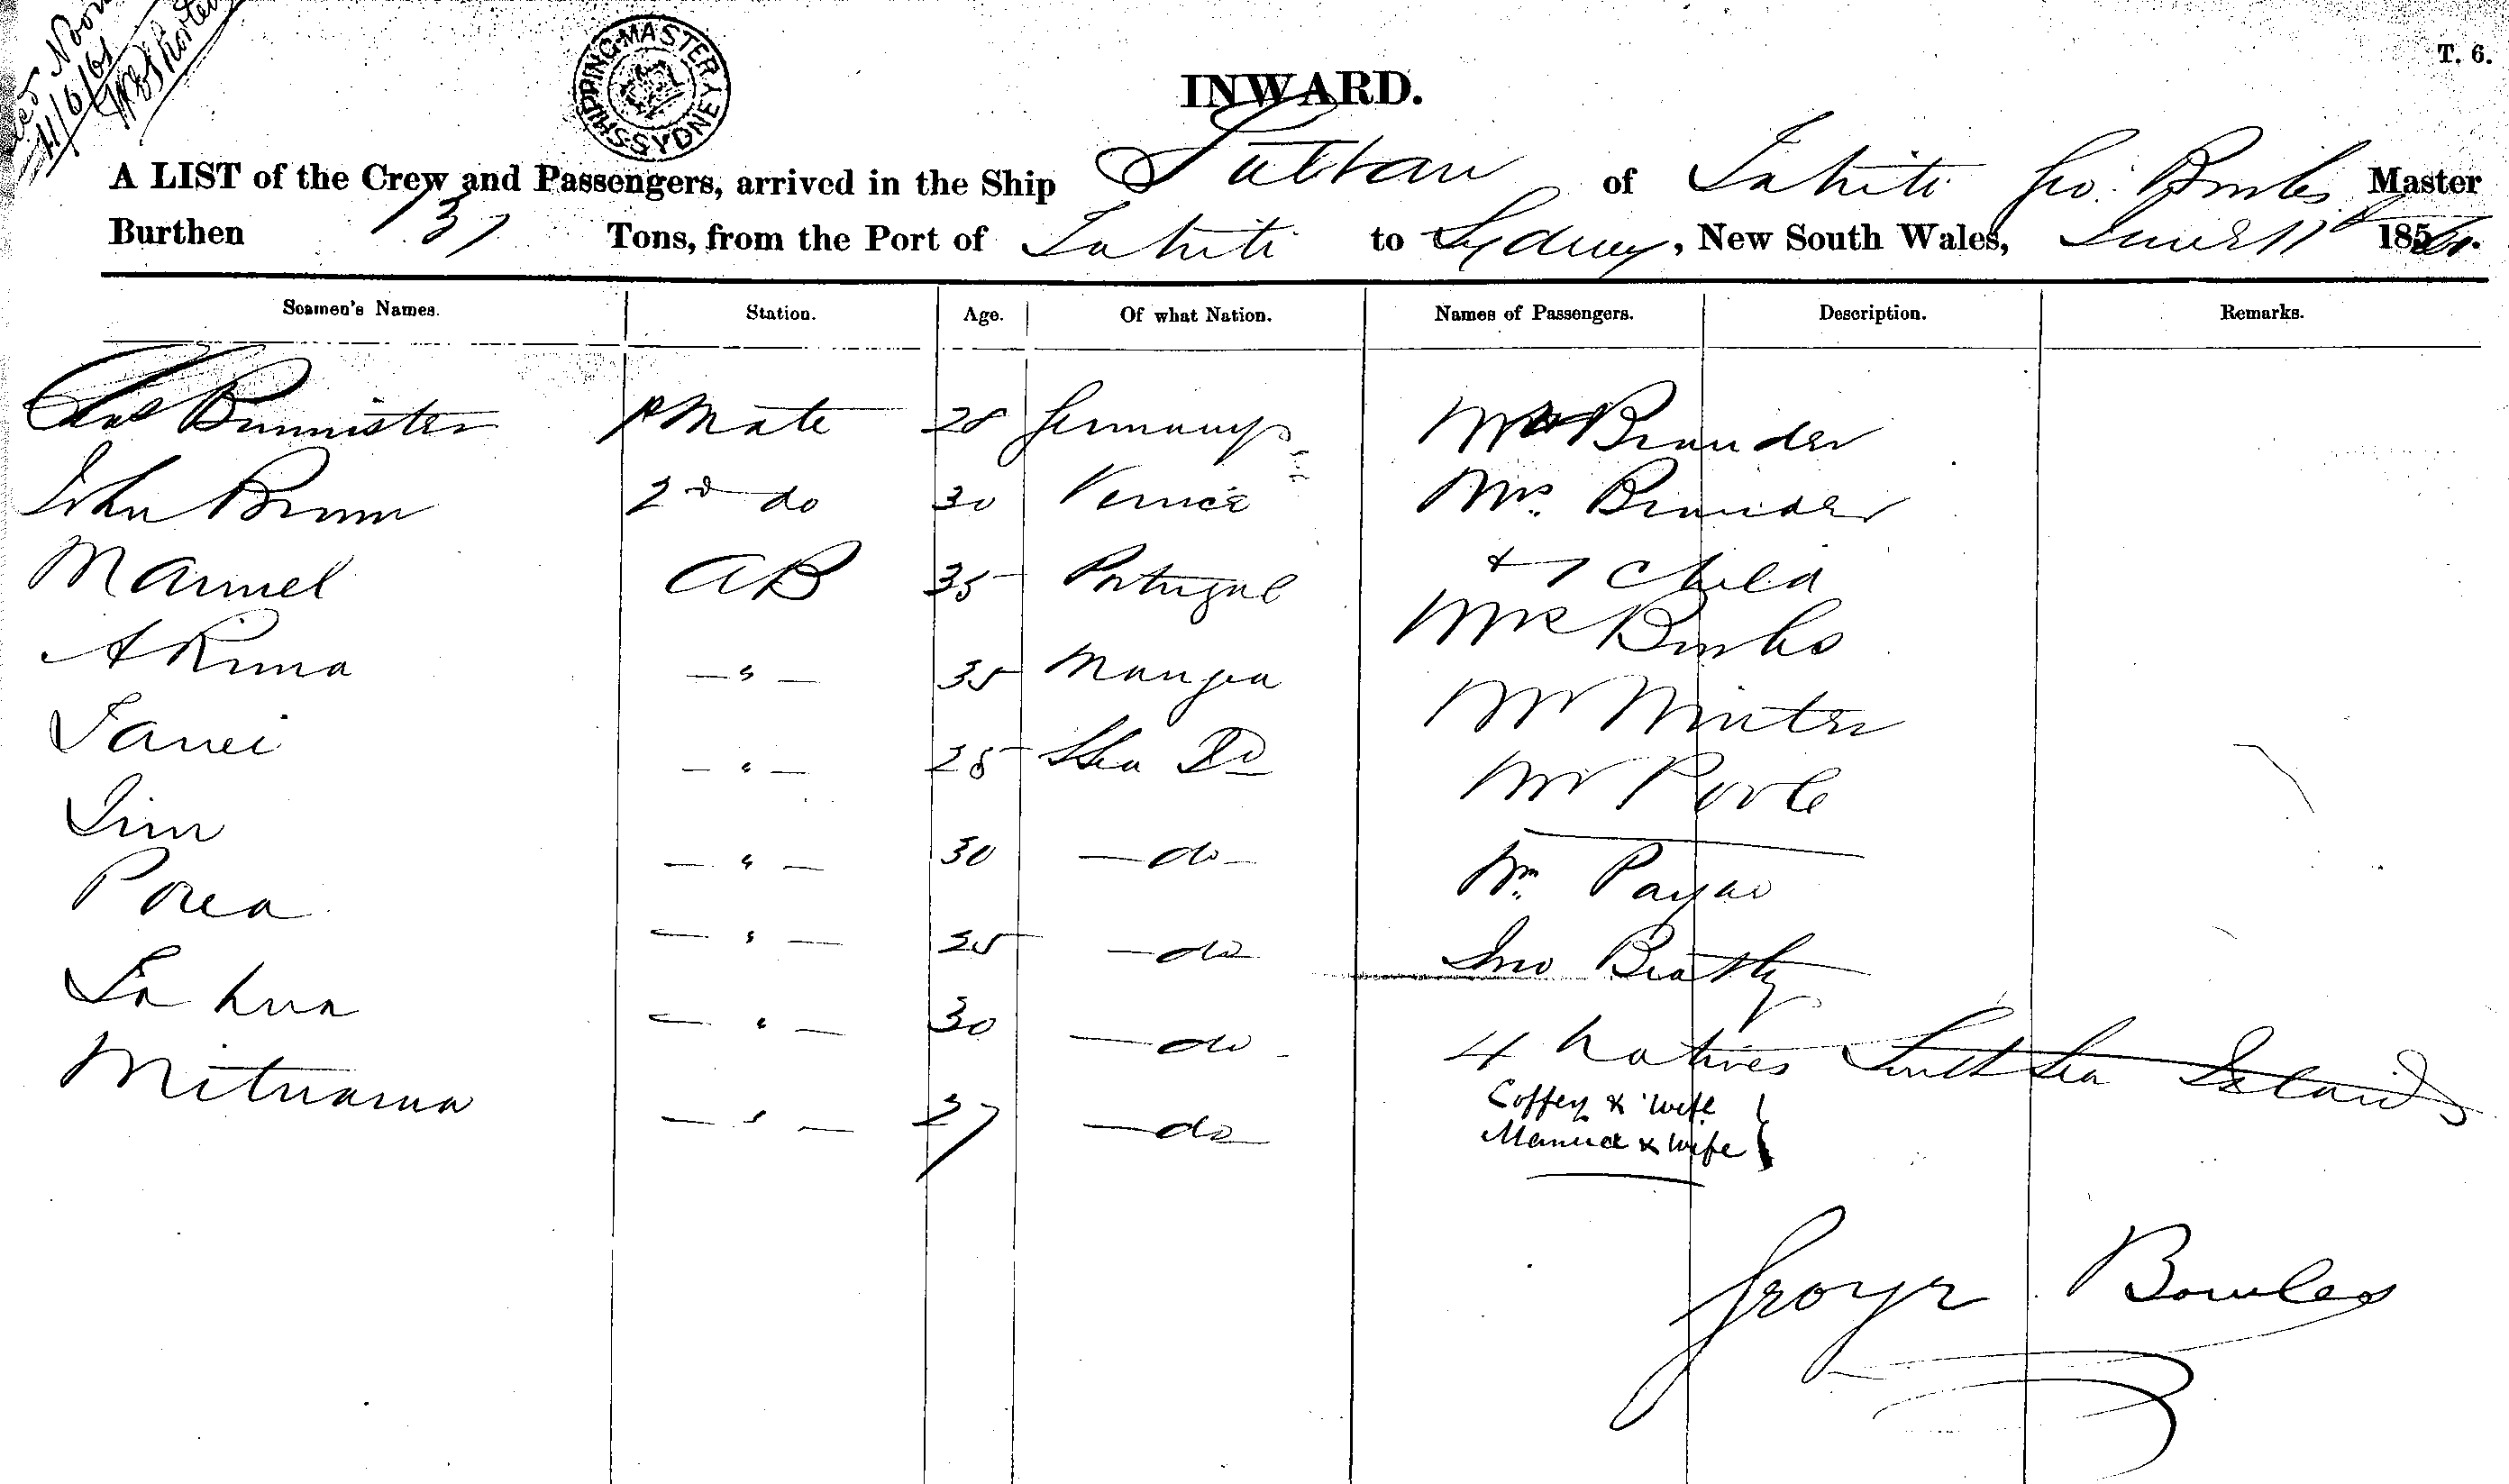 Noon
11/6/61
SHIPPING MASTER SYDNEY
T. 6.
INWARD.
A LIST of the Crew and Passengers, arrived in the Ship of Tahiti Geo. Bowles Master
Burthen 131 Tons, from the Port of Tahiti to Sydney, New South Wales, June 11th 1861.
Seamen's Names. Station. Age. Of what Nation. Names of Passengers. Description. Remarks.
Chas Bannister 1st Mate 28 Germany Mr Brander
John Brown 2nd do 30 Venice Mrs. Brander
Manuel AB 35 Portugal & 1 Child
Akuna — " — 35 Mangea Mrs Bowles
Tanei — " — 25 S Sea Id Mr Winter
Jim — " — 30 — do — Mr Poole
Porea — " — 25 — do Wm. Payne
Tahua — " — 30 — do — Jno Beatty
Mituarua — " — 27 — do — 4 Natives South Sea Islands
Coffey & wife
Manuel & wife
George Bowles